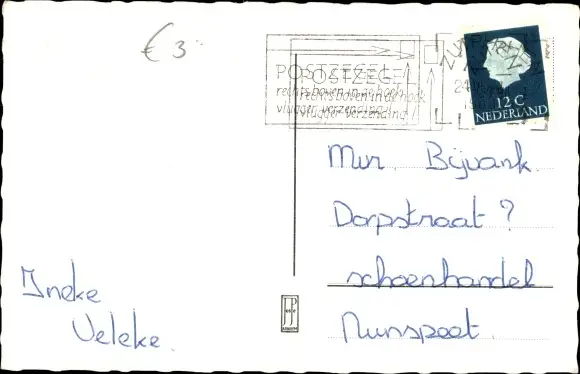 € 3
POSTZEGEL
rechtsboven in de hoek
vlugge verzending!
12 C
NEDERLAND
Mvr. Bijvank.
Dorpstraat ?
schoenhandel
Nunspeet.
Ineke
Veleke.